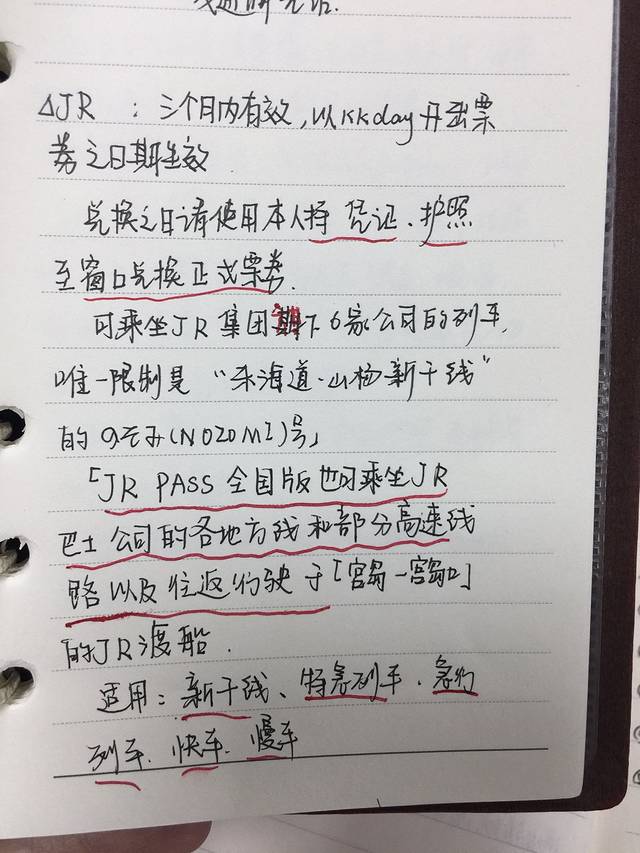 △JR : 三个月内有效,以kkday开出票
券之日期生效
兑换之日请使用本人持凭证、护照
至窗口兑换正式票券.
可乘坐JR集团旗下6家公司的列车,
唯一限制是“东海道·山杨新干线”
的のぞみ(NOZOMI)号」
「JR PASS全国版也可乘坐JR
巴士公司的各地方线和部分高速线
路以及往返行驶于「宫岛-宫岛口」
的JR渡船.
适用:新干线、特急列车、急行
列车、快车、慢车